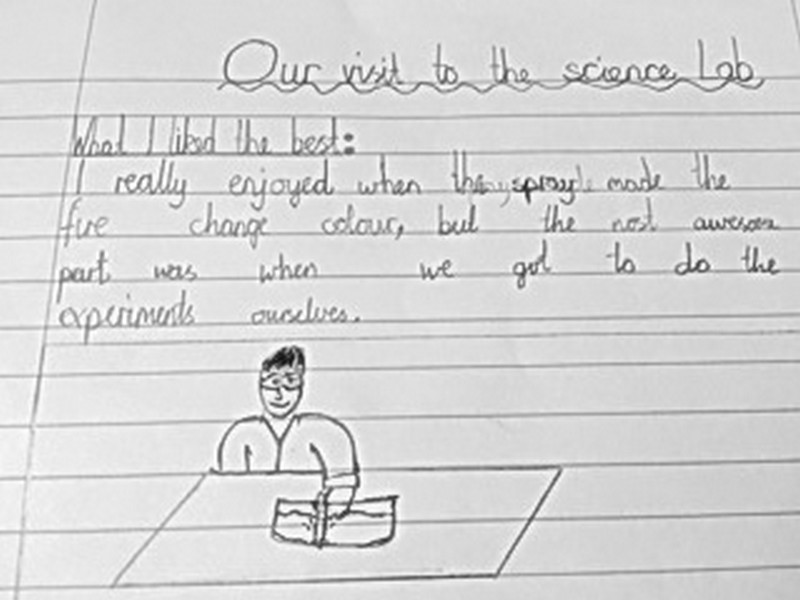 Our visit to the science Lab
What I liked the best:
I really enjoyed when the spray made the
fire change colour, but the most awesome
part was when we got to do the
experiments ourselves.